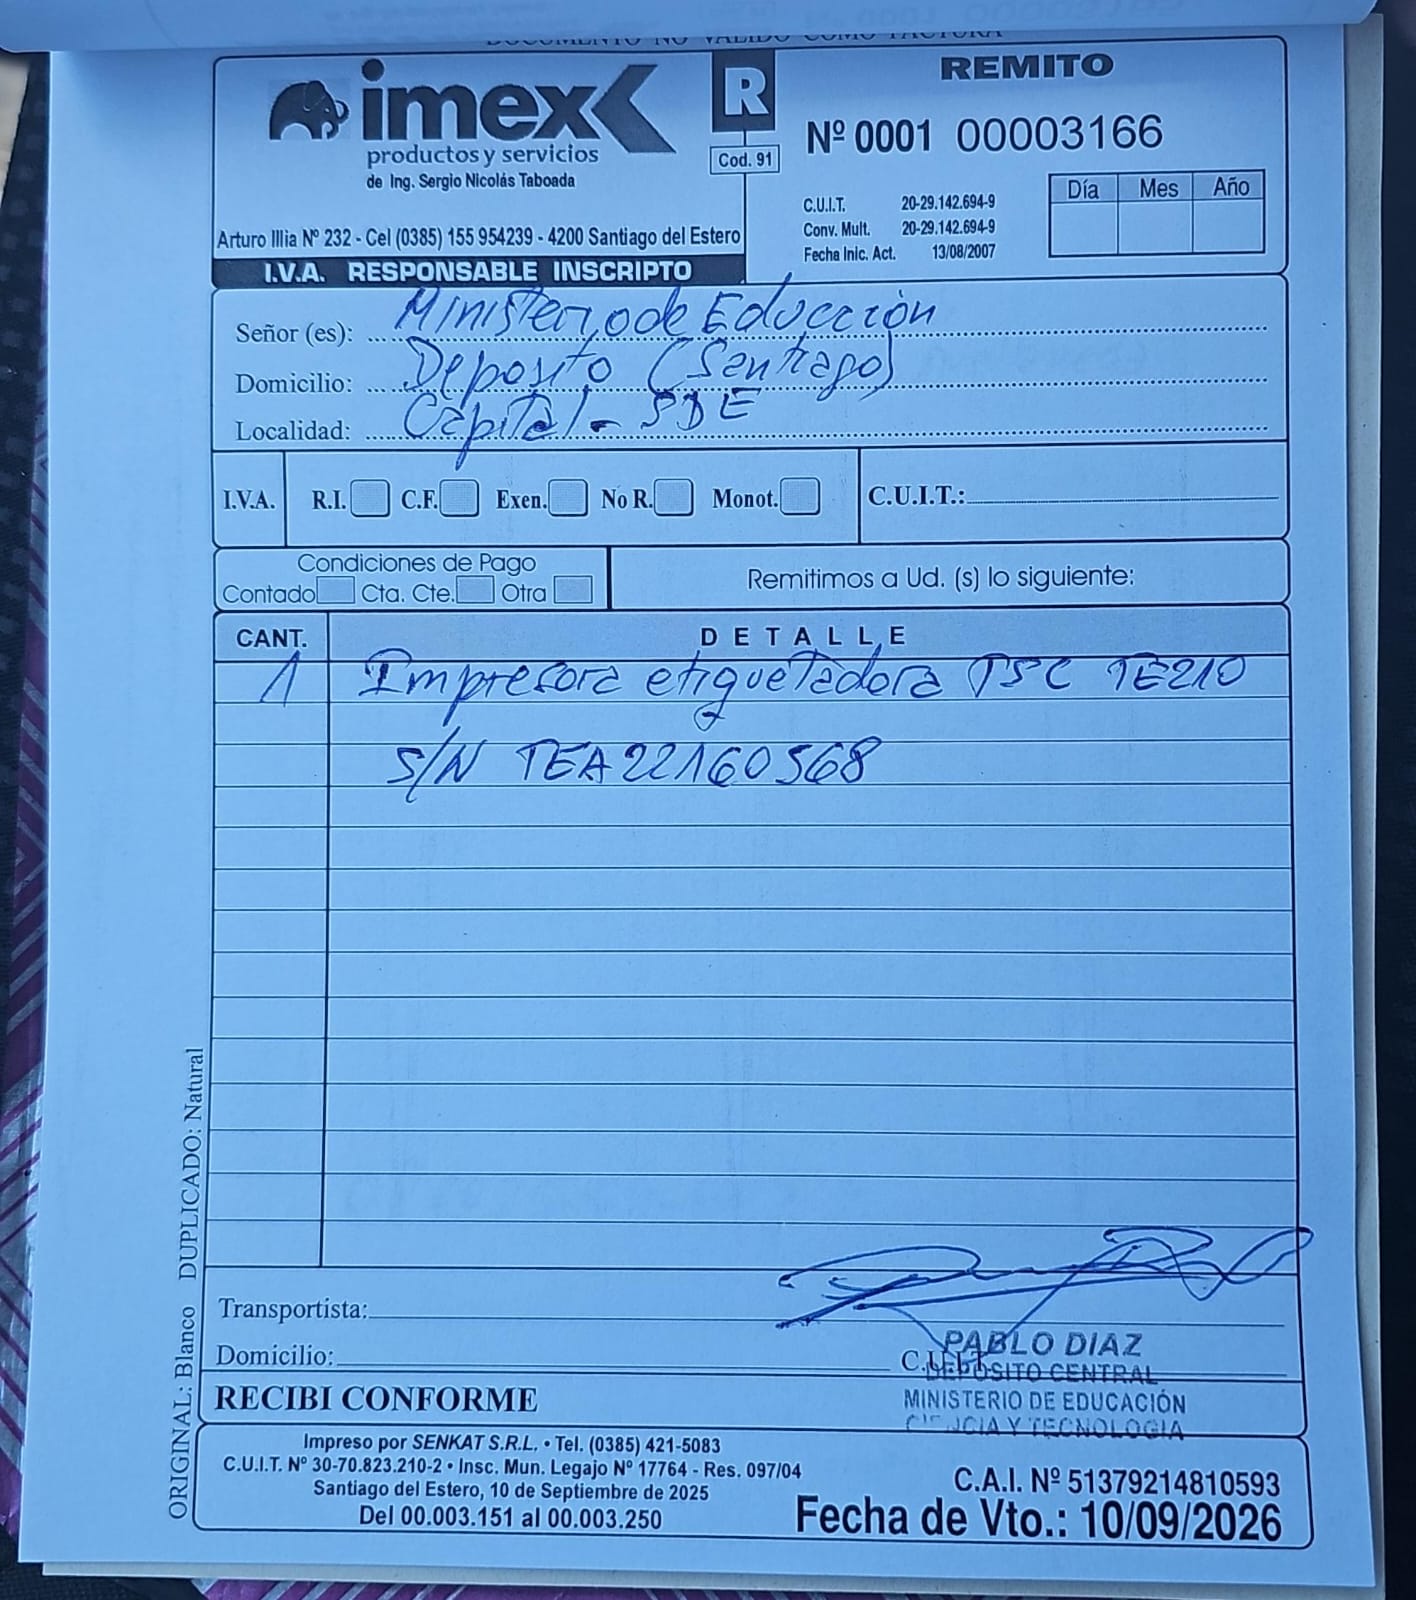 DOCUMENTO NO VALIDO COMO FACTURA
imex
productos y servicios
de Ing. Sergio Nicolás Taboada
Arturo Illia Nº 232 - Cel (0385) 155 954239 - 4200 Santiago del Estero
I.V.A. RESPONSABLE INSCRIPTO
R
Cod. 91
REMITO
Nº 0001 00003166
C.U.I.T. 20-29.142.694-9
Conv. Mult. 20-29.142.694-9
Fecha Inic. Act. 13/08/2007
Día Mes Año
Señor (es): Ministerio de Educación
Domicilio: Deposito (Santiago)
Localidad: Capital - SDE
I.V.A. R.I. C.F. Exen. No R. Monot. C.U.I.T.:
Condiciones de Pago
Contado Cta. Cte. Otra
Remitimos a Ud. (s) lo siguiente:
CANT. DETALLE
1 Impresora etiquetadora TSC TE210
S/N TEA22160568
Transportista:
Domicilio: C.U.I.T.
PABLO DIAZ
DEPOSITO CENTRAL
MINISTERIO DE EDUCACIÓN
CIENCIA Y TECNOLOGIA
RECIBI CONFORME
Impreso por SENKAT S.R.L. • Tel. (0385) 421-5083
C.U.I.T. Nº 30-70.823.210-2 • Insc. Mun. Legajo Nº 17764 - Res. 097/04
Santiago del Estero, 10 de Septiembre de 2025
Del 00.003.151 al 00.003.250
C.A.I. Nº 51379214810593
Fecha de Vto.: 10/09/2026
ORIGINAL: Blanco DUPLICADO: Natural